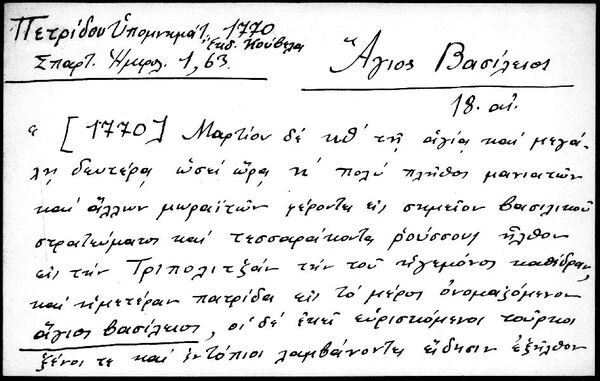 Πετρίδου Ὑπομνημάτ. 1770
ἐκδ. Κούβελα
Σπαρτ. Ἡμερολ. 1, 63.
Ἅγιος Βασίλειος
18. αἰ.
« [1770] Μαρτίου δὲ κθ΄ τῇ ἁγίᾳ καὶ μεγά-
λῃ δευτέρᾳ ὡσεὶ ὥρᾳ η΄ πολὺ πλῆθος μανιατῶν
καὶ ἄλλων μωραϊτῶν φέροντες εἰς σημεῖον βασιλικοῦ
στρατεύματος καὶ τεσσαράκοντα ῥούσσους ἦλθον
εἰς τὴν Τριπολιτζὰν τὴν τοῦ ἡγεμόνος καθέδραν,
καὶ ἡμετέραν πατρίδα εἰς τὸ μέρος ὀνομαζόμενον
ἅγιος βασίλειος, οἱ δὲ ἐκεῖ εὑρισκόμενοι τοῦρκοι
ξένοι τε καὶ ἐντόπιοι λαμβάνοντες εἴδησιν ἐξῆλθον